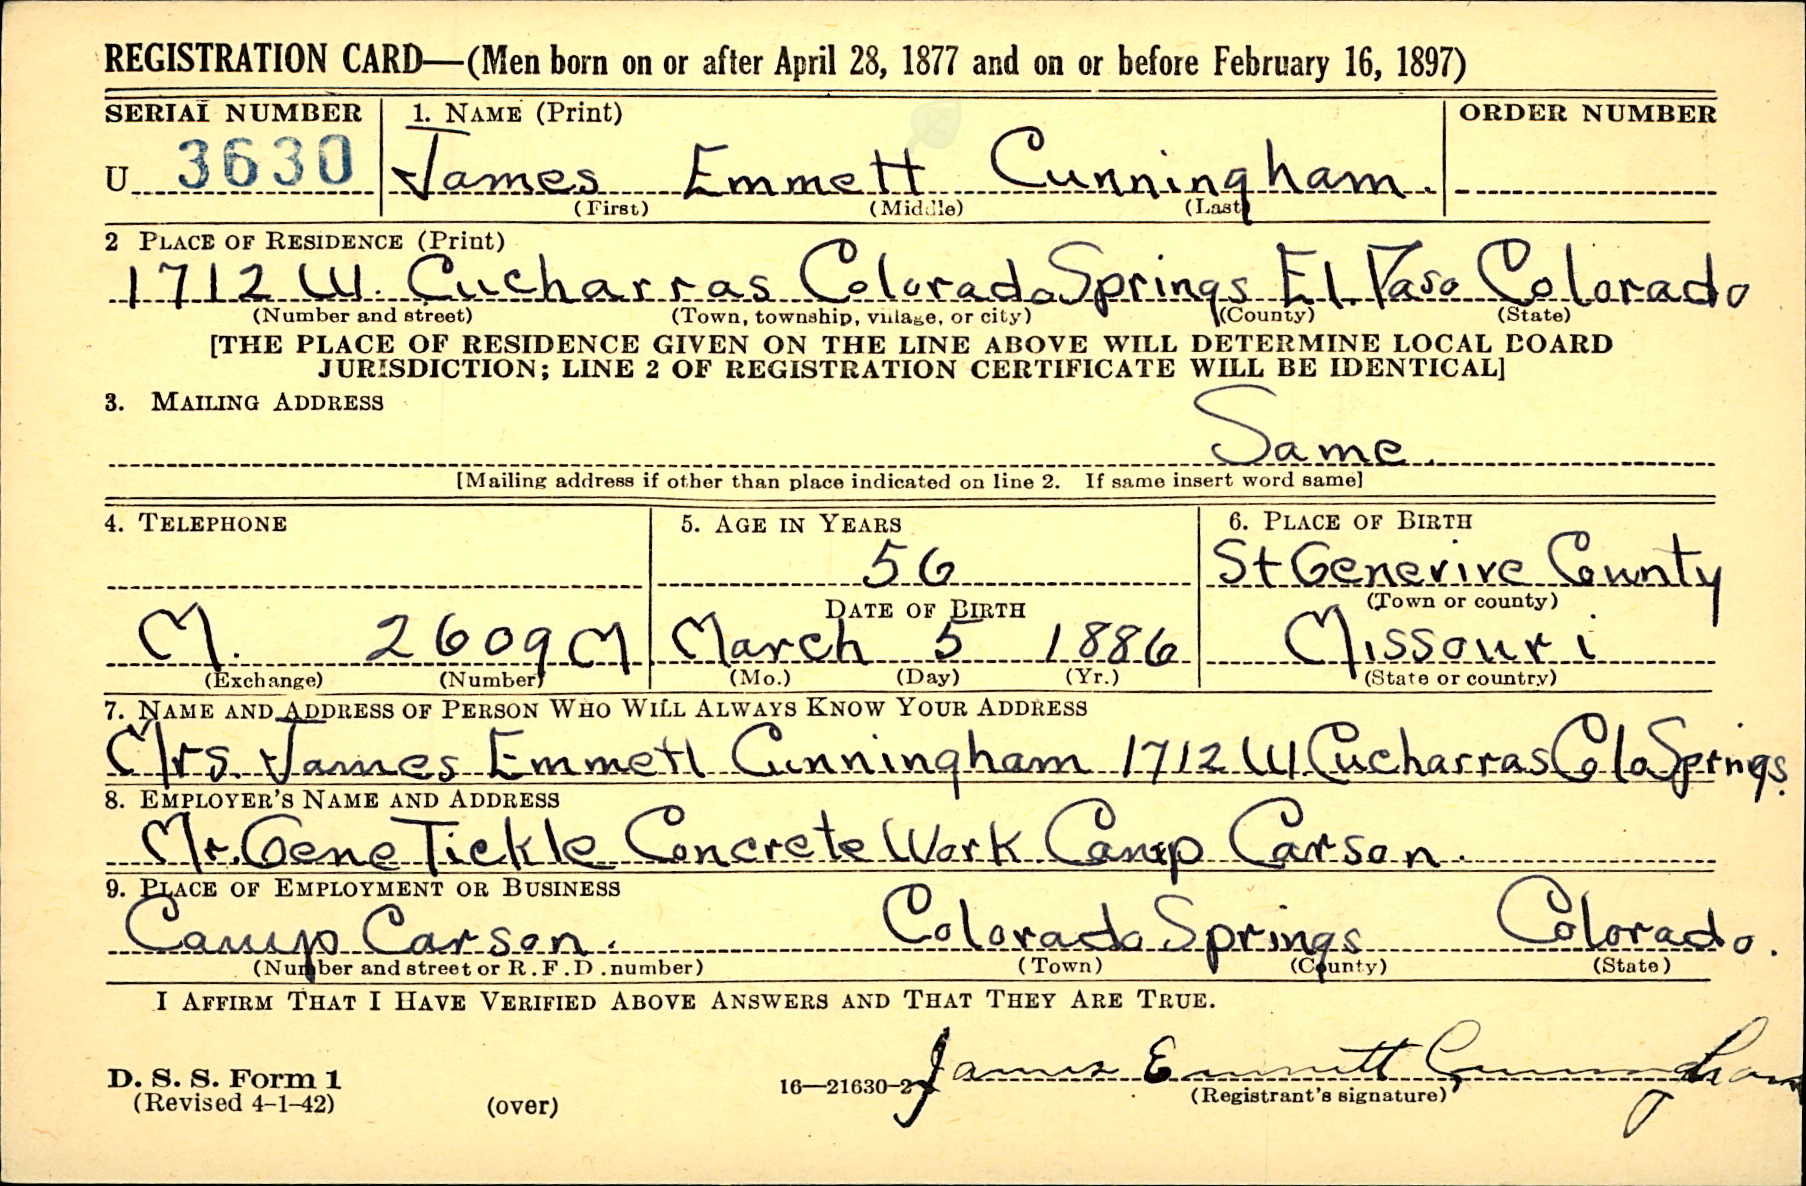 REGISTRATION CARD—(Men born on or after April 28, 1877 and on or before February 16, 1897)
SERIAL NUMBER 1. NAME (Print) ORDER NUMBER
U 3630 James Emmett Cunningham.
(First) (Middle) (Last)
2 PLACE OF RESIDENCE (Print)
1712 W. Cucharras Colorado Springs El. Paso Colorado
(Number and street) (Town, township, village, or city) (County) (State)
[THE PLACE OF RESIDENCE GIVEN ON THE LINE ABOVE WILL DETERMINE LOCAL BOARD
JURISDICTION; LINE 2 OF REGISTRATION CERTIFICATE WILL BE IDENTICAL]
3. MAILING ADDRESS
Same.
[Mailing address if other than place indicated on line 2. If same insert word same]
4. TELEPHONE 5. AGE IN YEARS 6. PLACE OF BIRTH
56 St Generive County
DATE OF BIRTH (Town or county)
M. 2609M March 5 1886 Missouri
(Exchange) (Number) (Mo.) (Day) (Yr.) (State or country)
7. NAME AND ADDRESS OF PERSON WHO WILL ALWAYS KNOW YOUR ADDRESS
Mrs. James Emmett Cunningham 1712 W Cucharras Colo Springs.
8. EMPLOYER'S NAME AND ADDRESS
Mr. Gene Tickle Concrete Work Camp Carson.
9. PLACE OF EMPLOYMENT OR BUSINESS
Camp Carson. Colorado Springs Colorado.
(Number and street or R.F.D. number) (Town) (County) (State)
I AFFIRM THAT I HAVE VERIFIED ABOVE ANSWERS AND THAT THEY ARE TRUE.
James Emmett Cunningham
D. S. S. Form 1 16—21630-2 (Registrant's signature)
(Revised 4-1-42) (over)